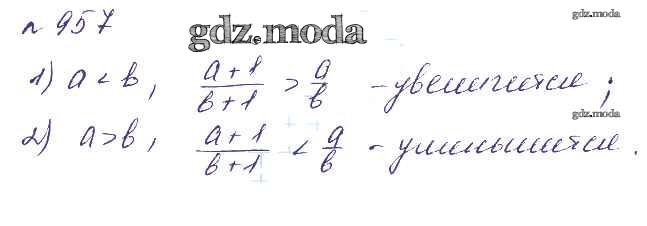 № 957 gdz.moda gdz.moda
1) a < b, (a+1)/(b+1) > a/b - увеличится;
gdz.moda
2) a > b, (a+1)/(b+1) < a/b - уменьшится.